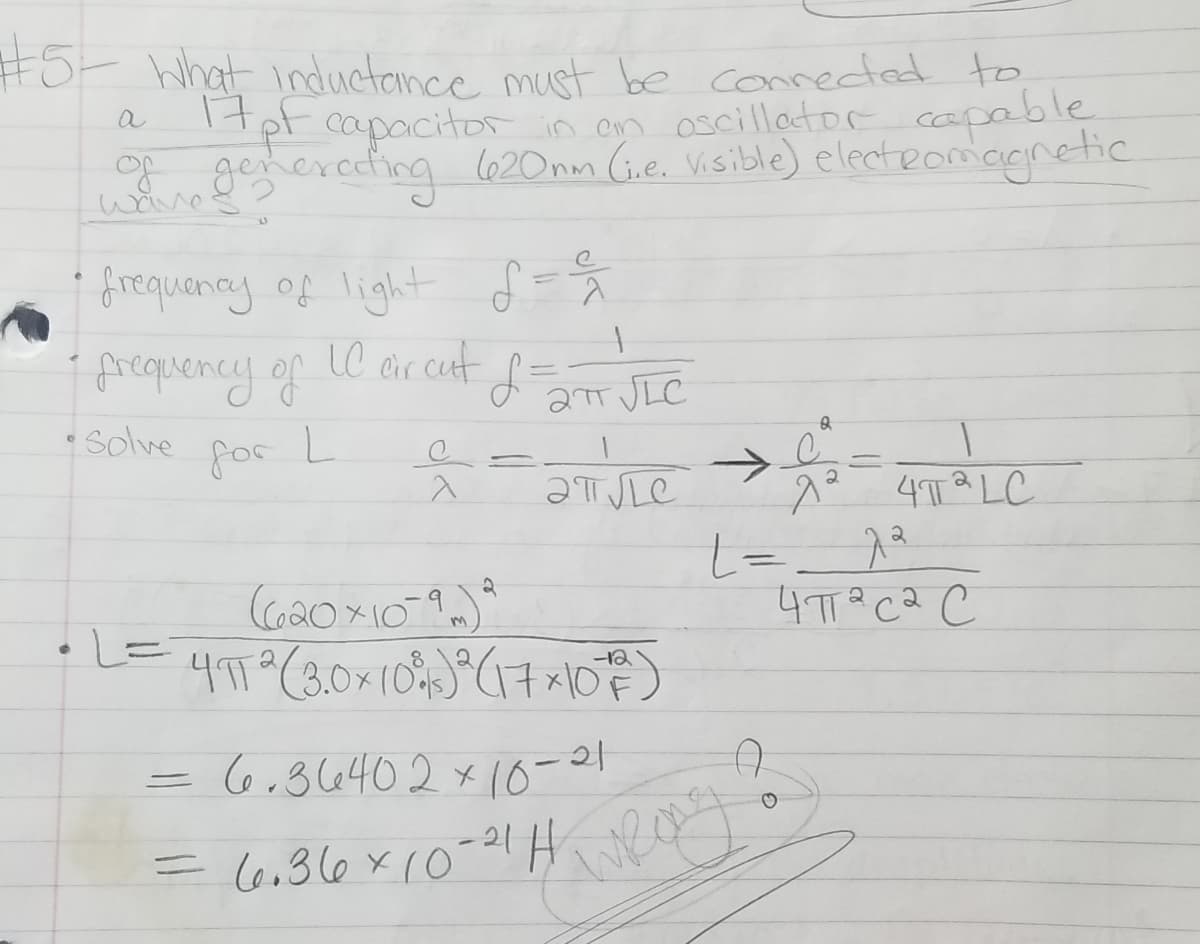 #5- What inductance must be connected to
a 17pf capacitor in an oscillator capable
of generating 620nm (i.e. visible) electromagnetic
waves?
• frequency of light f = c/λ
• frequency of LC circut f = 1/(2π √LC)
• Solve for L c/λ = 1/(2π√LC) → c²/λ² = 1/(4π²LC)
L = λ²/(4π²c²C)
• L = (620×10⁻⁹m)²/(4π²(3.0×10⁸m/s)²(17×10⁻¹²F))
= 6.36402 × 10⁻²¹
= 6.36 × 10⁻²¹ H wrong ?